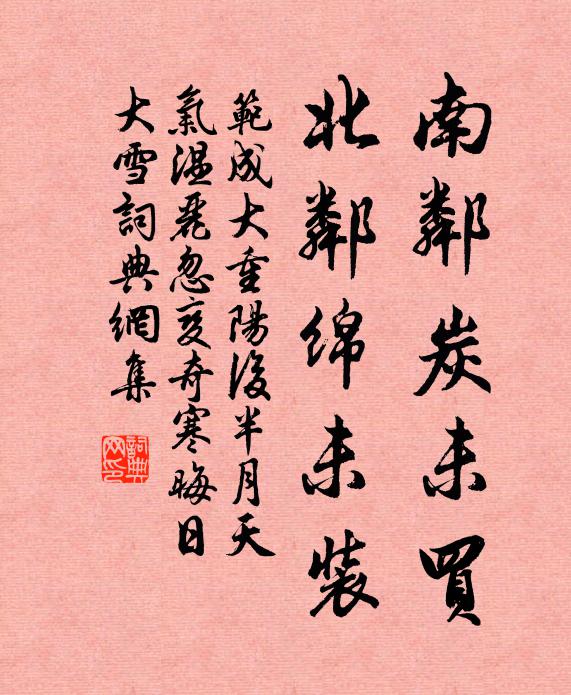 南鄰炭未買
北鄰綿未裝
範成大重陽後半月天
氣溫麗忽變奇寒晦日
大雪詞典網集
詞典
网印